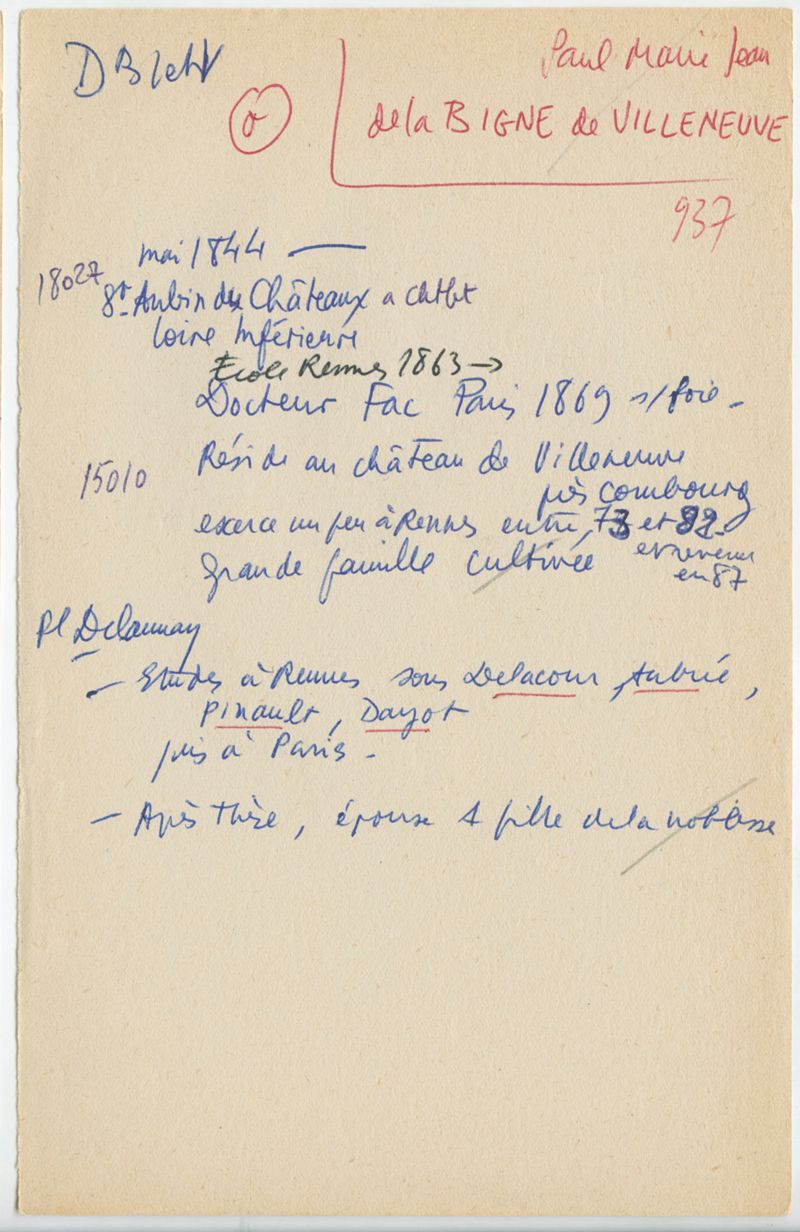 Paul Marie Jean
de la BIGNE de VILLENEUVE
937
mai 1844 —
18027
St Aubin des Châteaux a chtbt
Loire Inférieure
Ecole Rennes 1863 →
Docteur Fac Paris 1869 s/ foie -
15010
Réside au château de Villeneuve
près Combourg
exerce un peu à Rennes entre 73 et 82
et revenu
en 87
grande famille cultivée
Pl Delaunay
- Etudes à Rennes sous Delacour, Aubrée,
Pinault, Dayot
puis à Paris -
- Après thèse, épouse 1 fille de la noblesse